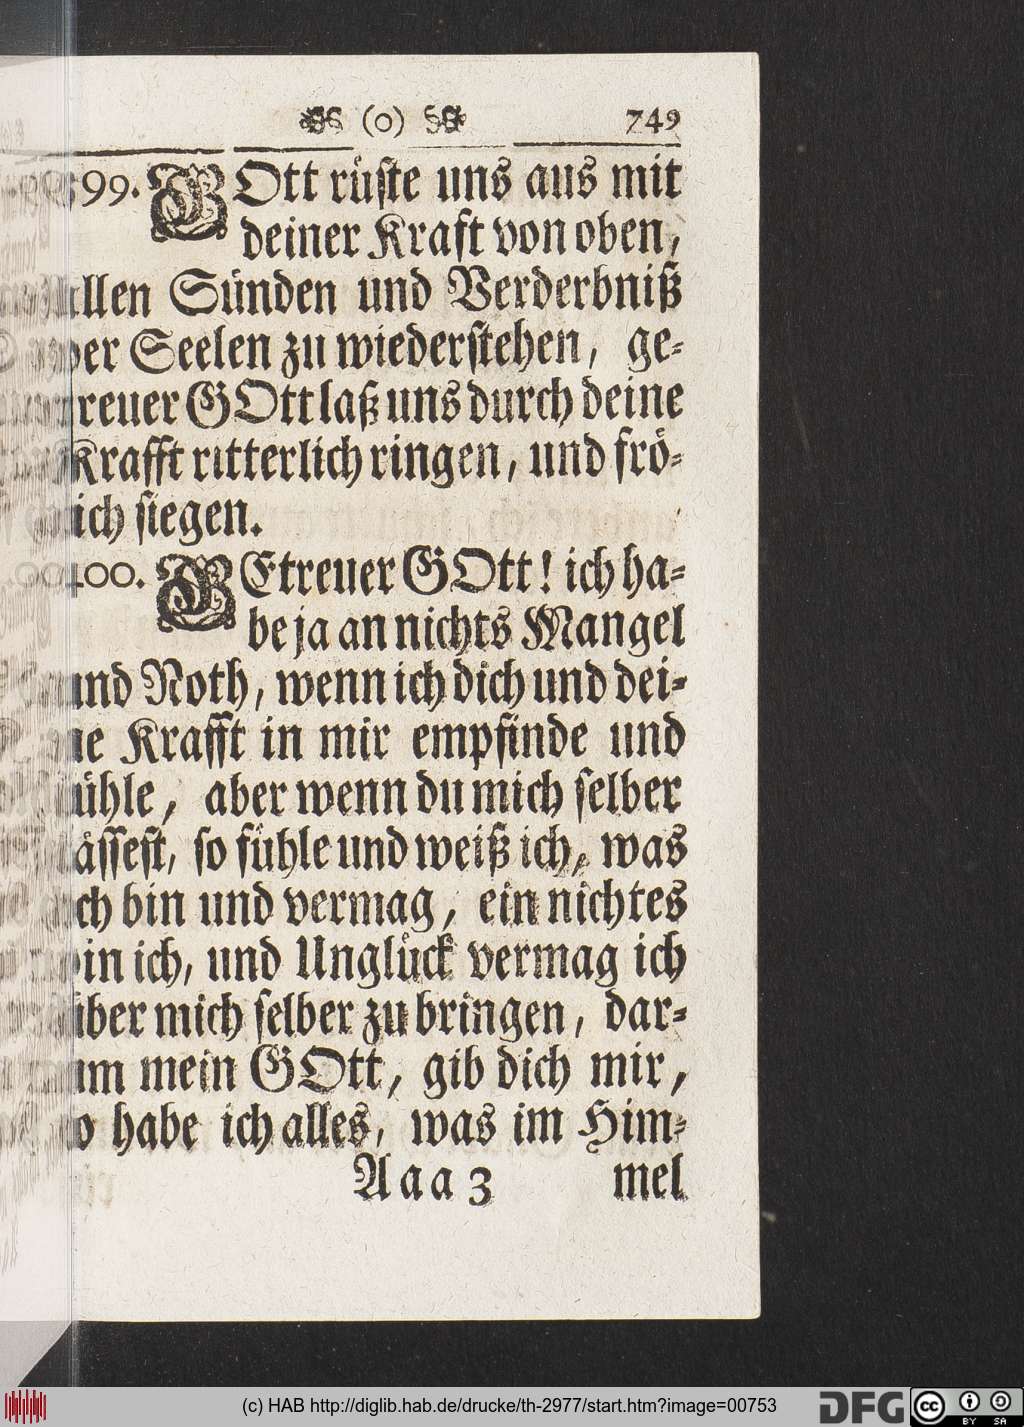 (o) 749
99. GOtt rüste uns aus mit
deiner Kraft von oben,
allen Sünden und Verderbniß
der Seelen zu wiederstehen, ge-
treuer GOtt laß uns durch deine
Krafft ritterlich ringen, und frö-
lich siegen.
400. GEtreuer GOtt! ich ha-
be ja an nichts Mangel
und Noth, wenn ich dich und dei-
ne Krafft in mir empfinde und
fühle, aber wenn du mich selber
lässest, so fühle und weiß ich, was
ich bin und vermag, ein nichtes
bin ich, und Unglück vermag ich
über mich selber zu bringen, dar-
um mein GOtt, gib dich mir,
so habe ich alles, was im Him-
Aaa 3 mel
(c) HAB http://diglib.hab.de/drucke/th-2977/start.htm?image=00753
DFG
cc BY SA